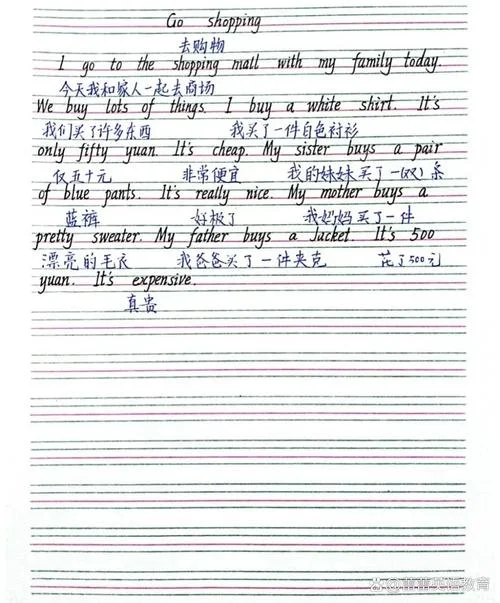 Go shopping
去购物
I go to the shopping mall with my family today.
今天我和家人一起去商场
We buy lots of things. I buy a white shirt. It's
我们买了许多东西 我买了一件白色衬衫
only fifty yuan. It's cheap. My sister buys a pair
仅五十元 非常便宜 我的妹妹买了一(双)条
of blue pants. It's really nice. My mother buys a
蓝裤 好极了 我妈妈买了一件
pretty sweater. My father buys a Jacket. It's 500
漂亮的毛衣 我爸爸买了一件夹克 花了500元
yuan. It's expensive.
真贵
@蕾蕾英语教育